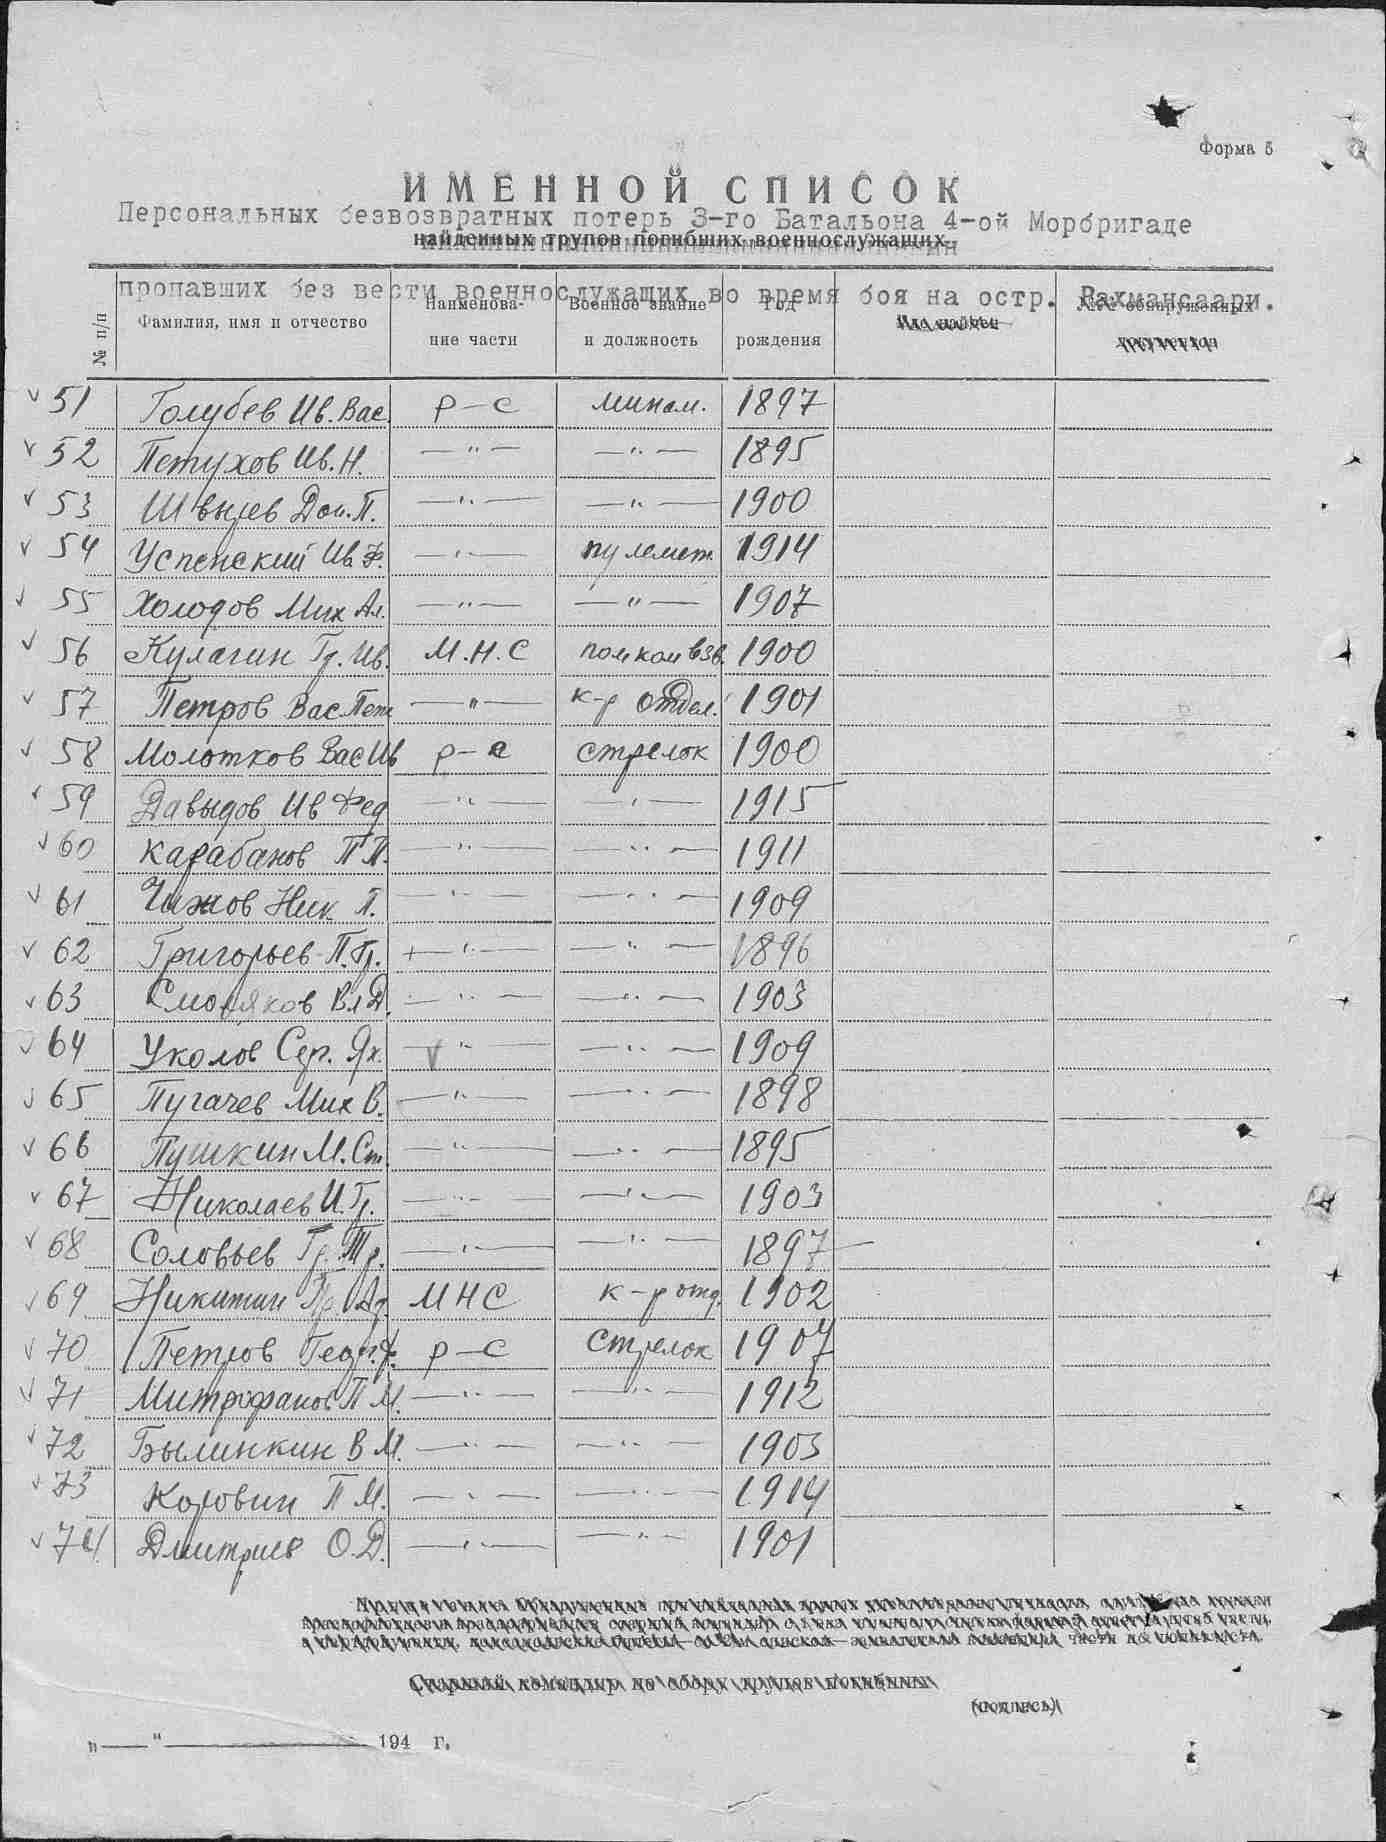 Форма 5
ИМЕННОЙ СПИСОК
Персональных безвозвратных потерь 3-го Батальона 4-ой Морбригаде
найденных трупов погибших военнослужащих
пропавших без вести военнослужащих во время боя на остр. Рахмансаари.
№ п/п Фамилия, имя и отчество Наименова- Военное звание Год №№ обнаруженных
ние части и должность рождения
51 Голубев Ив. Вас. р-с мином. 1897
52 Петухов Ив. Н. —"— —"— 1895
53 Швырев П. —"— —"— 1900
54 Успенский Ив. Ф. —"— пулемет. 1914
55 Холодов Мих Ал. —"— —"— 1907
56 Кулагин Гр. Ив. М.Н.С помкомвзв. 1900
57 Петров Вас Пет —"— к-р отдел. 1901
58 Молотков Вас Ив р-с стрелок 1900
59 Давыдов Ив Фед —"— —"— 1915
60 Карабанов П П. —"— —"— 1911
61 Чижов Ник П. —"— —"— 1909
62 Григорьев П. Гр. —"— —"— 1896
63 Смоляков Вл Д. —"— —"— 1903
64 Уколов Сер. Як. —"— —"— 1909
65 Пугачев Мих В. —"— —"— 1898
66 Пушкин М. Ст. —"— —"— 1895
67 Николаев И. Гр. —"— —"— 1903
68 Соловьев Гр. Тр. —"— —"— 1897
69 Никитин МНС к-р отд. 1902
70 Петров Георг. Ф. р-с стрелок 1907
71 Митрофанов П М. —"— —"— 1912
72 Былинкин В М. —"— —"— 1903
73 Коровин П М. —"— —"— 1914
74 Дмитриев О. Д. —"— —"— 1901
Старший командир по сбору трупов погибших
(подпись)
"—"— 194 г.